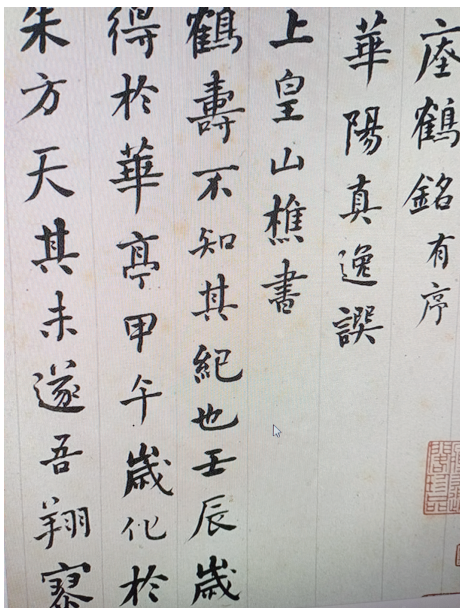 瘞鶴銘有序
華陽真逸譔
上皇山樵書
鶴壽不知其紀也壬辰歲
得於華亭甲午歲化於
朱方天其未遂吾翔寥